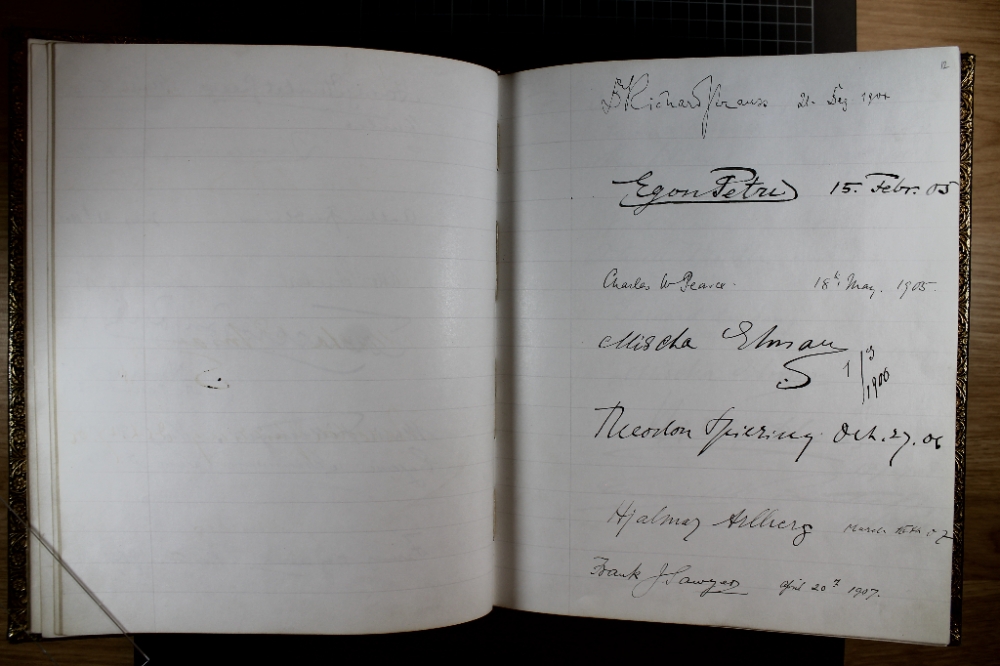 12
Dr Richard Strauss 21. Dez 1904
Egon Petri 15. Febr. 05
Charles W Pearce. 18th May. 1905.
Mischa Elman 1/3 1906
Theodor Spiering Oct. 27. 06
Hjalmar Arlberg March 07
Frank J Sawyer April 20th 1907.